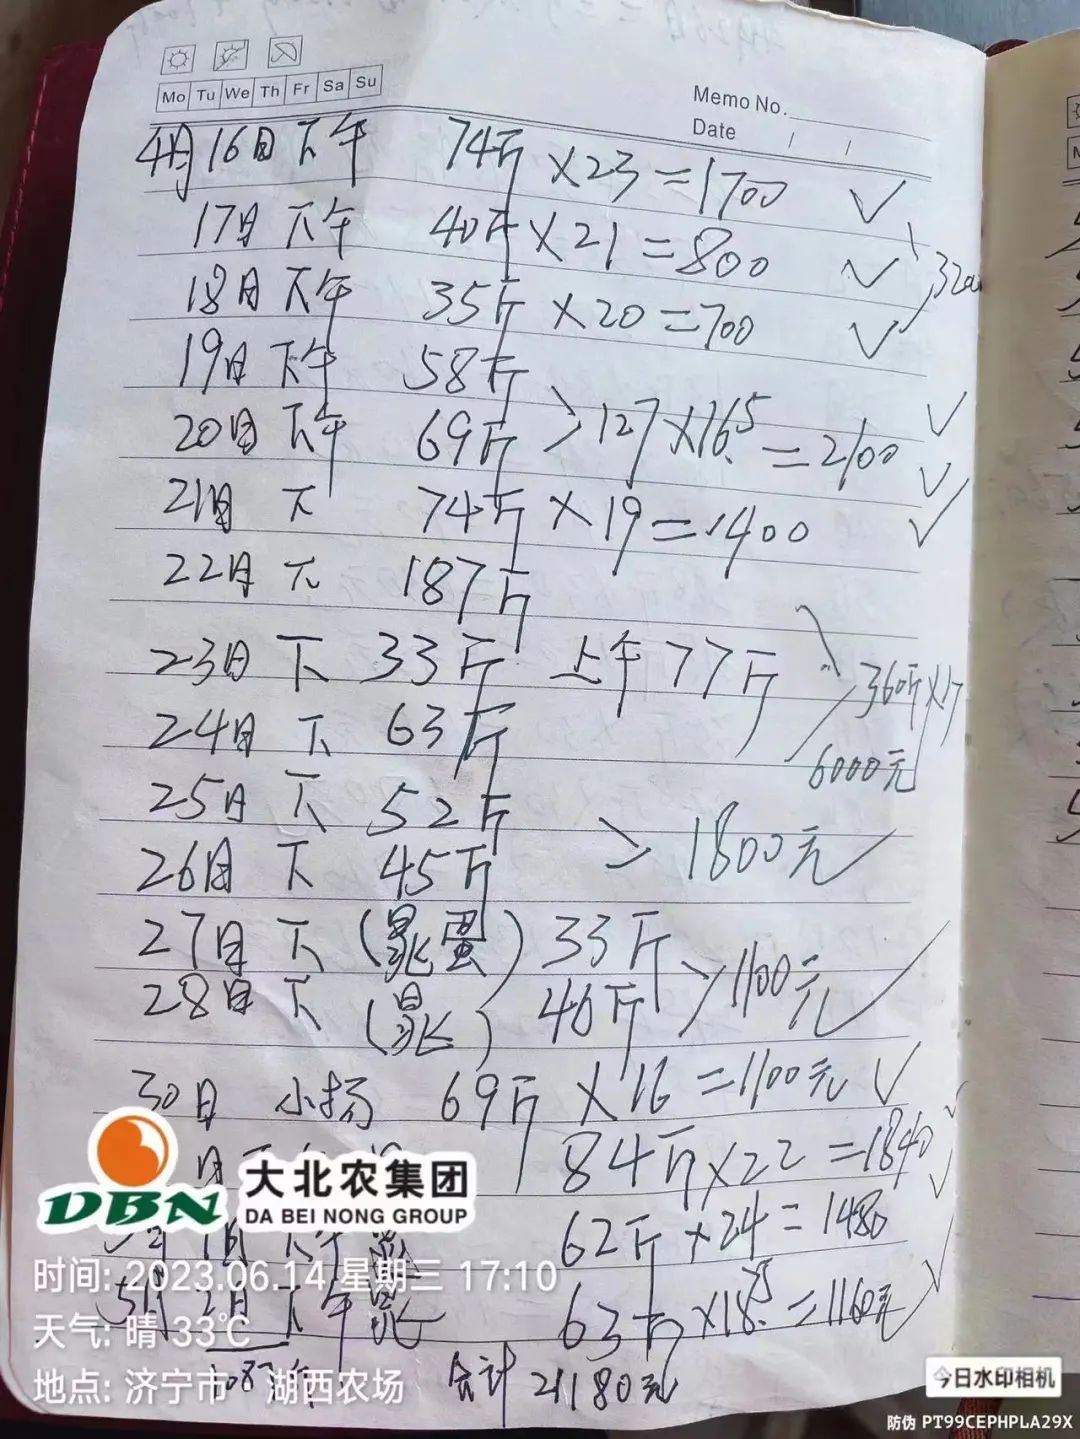 Mo Tu We Th Fr Sa Su
Memo No.
Date / /
4月16日下午 74斤×23=1700 ✓
17日下午 40斤×21=800 ✓
18日下午 35斤×20=700 ✓
19日下午 58斤
20日下午 69斤 >127×16.5=2100 ✓
21日 下 74斤×19=1400 ✓
22日 下 187斤
23日 下 33斤 上午77斤
360斤×17
24日 下 63斤
6000元
25日 下 52斤
26日 下 45斤 >1800元
27日 下 (晁蛋) 33斤
28日 下 (晁) 40斤 >1100元
30日 小杨 69斤×16=1100元 ✓
84斤×22=1840
62斤×24=1480
5月2日下午晁 63斤×18.5=1160元
合计 21180元
DBN 大北农集团
DA BEI NONG GROUP
时间: 2023.06.14 星期三 17:10
天气: 晴 33℃
地点: 济宁市·湖西农场
今日水印相机
防伪 PT99CEPHPLA29X